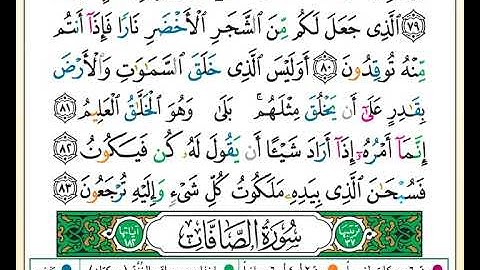 ﴿٧٩﴾ ٱلَّذِى جَعَلَ لَكُم مِّنَ ٱلشَّجَرِ ٱلْأَخْضَرِ نَارًا فَإِذَآ أَنتُم
مِّنْهُ تُوقِدُونَ ﴿٨٠﴾ أَوَلَيْسَ ٱلَّذِى خَلَقَ ٱلسَّمَـٰوَٰتِ وَٱلْأَرْضَ
بِقَـٰدِرٍ عَلَىٰٓ أَن يَخْلُقَ مِثْلَهُم ۚ بَلَىٰ وَهُوَ ٱلْخَلَّـٰقُ ٱلْعَلِيمُ ﴿٨١﴾
إِنَّمَآ أَمْرُهُۥٓ إِذَآ أَرَادَ شَيْـًٔا أَن يَقُولَ لَهُۥ كُن فَيَكُونُ ﴿٨٢﴾
فَسُبْحَـٰنَ ٱلَّذِى بِيَدِهِۦ مَلَكُوتُ كُلِّ شَىْءٍ وَإِلَيْهِ تُرْجَعُونَ ﴿٨٣﴾
رتبتها ٣٧ سُورَةُ الصَّافَّاتِ آياتها ١٨٢